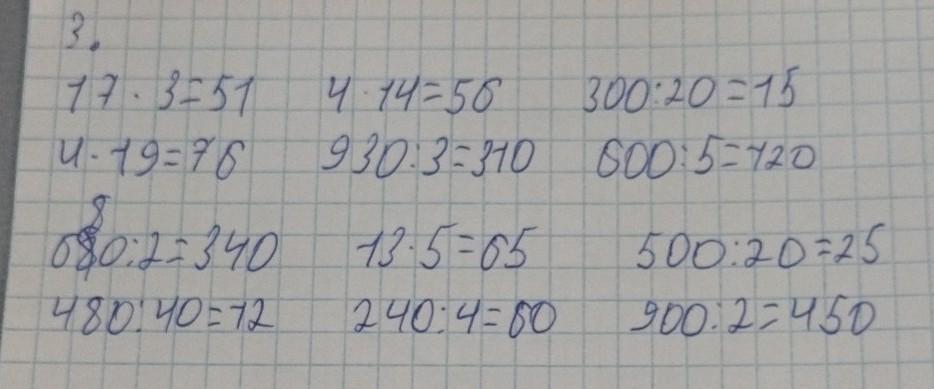 3.
17 · 3 = 51 4 · 14 = 56 300 : 20 = 15
4 · 19 = 76 930 : 3 = 310 600 : 5 = 120
680 : 2 = 340 13 · 5 = 65 500 : 20 = 25
480 : 40 = 12 240 : 4 = 60 900 : 2 = 450